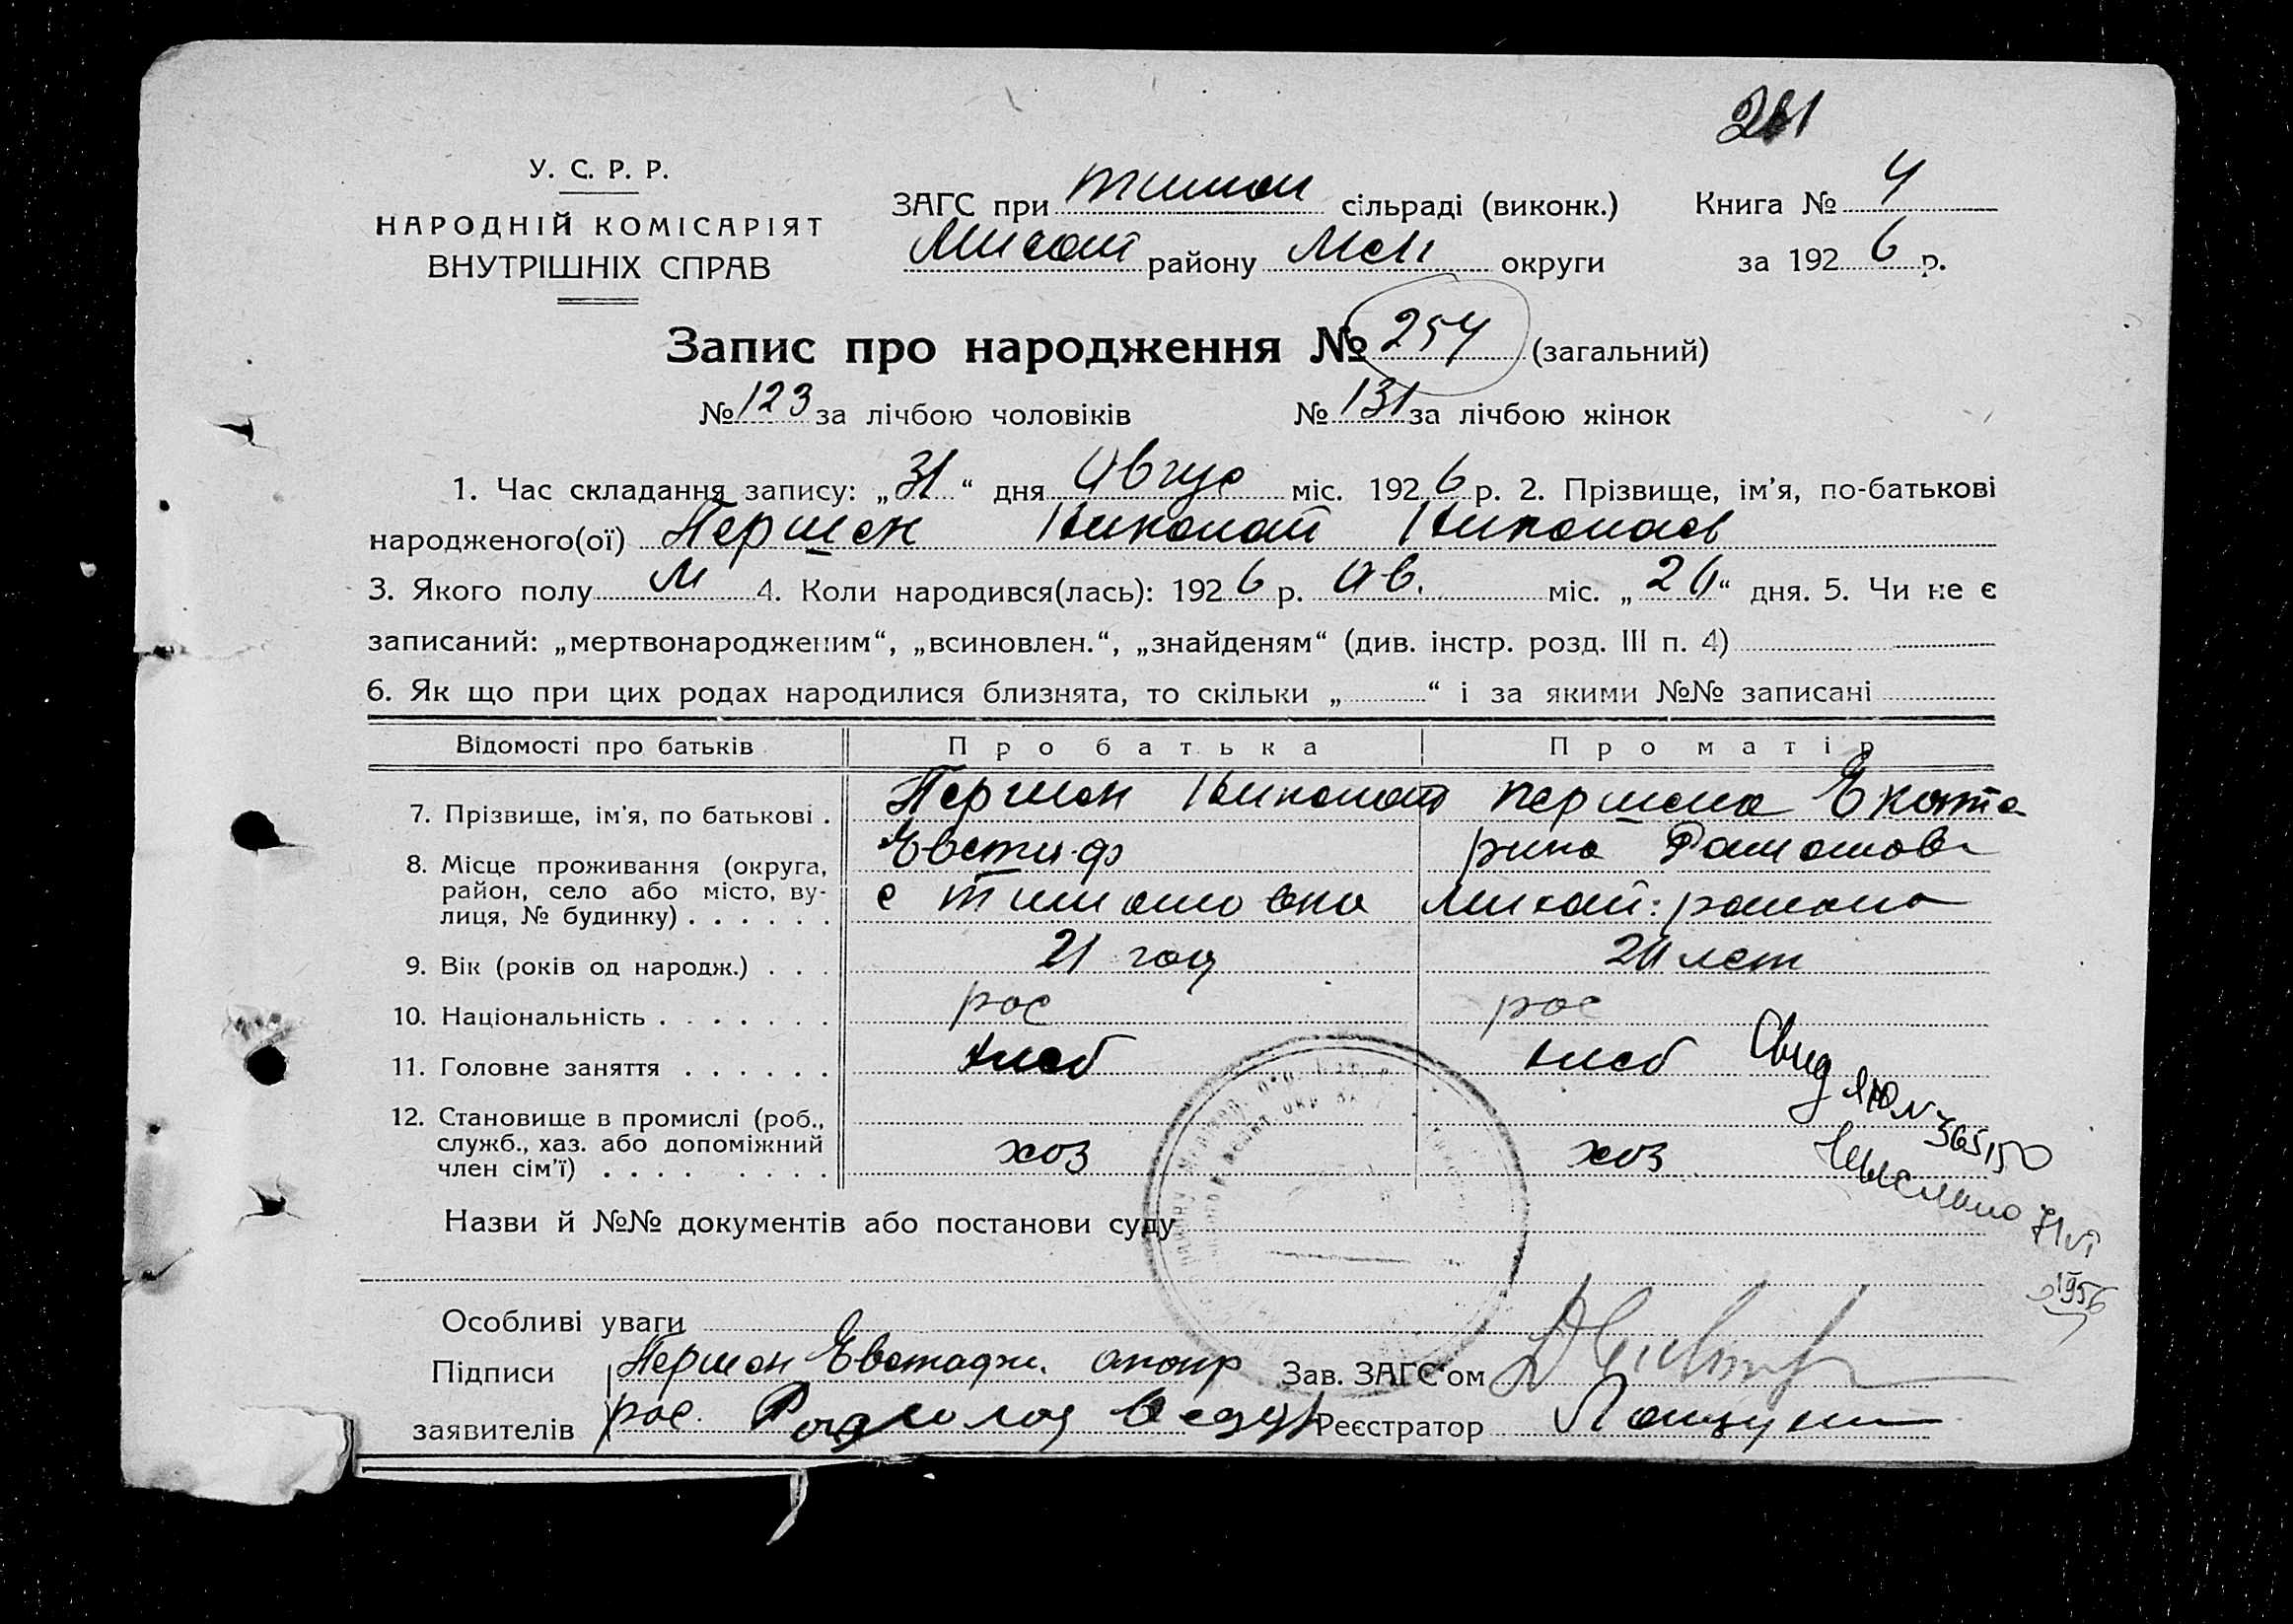 У. С. Р. Р.
НАРОДНІЙ КОМІСАРІЯТ
ВНУТРІШНІХ СПРАВ
ЗАГС при Тимош сільраді (виконк.)
Михай району Мел округи
Книга № 4
за 1926 р.
Запис про народження № 254 (загальний)
№ 123 за лічбою чоловіків № 131 за лічбою жінок
1. Час складання запису: „31“ дня Авгус міс. 1926 р. 2. Прізвище, ім'я, по-батькові
народженого(ої) Першен Николай Николаев
3. Якого полу М 4. Коли народився(лась): 1926 р. Ав. міс. „ “ дня. 5. Чи не є
записаний: „мертвонародженим“, „всиновлен.“, „знайденям“ (див. інстр. розд. III п. 4)
6. Як що при цих родах народилися близнята, то скільки „ “ і за якими №№ записані
Відомості про батьків Про батька Про матір
7. Прізвище, ім'я, по батькові . Першен Николай Першена Екате
Евстаф рина
8. Місце проживання (округа, район, село або місто, вулиця, № будинку) . . . . . . с Тимошовка Михай: района
9. Вік (років од народж.) . . . 21 год лет
10. Національність . . . . . . . рос рос
11. Головне заняття . . . . . . хлеб хлеб
12. Становище в промислі (роб., служб., хаз. або допоміжний член сім'ї) . . . . . . . . хоз хоз
Свид ЯЮ № 365150
Выслано
1956
Назви й №№ документів або постанови суду
Особливі уваги
Підписи Першен Зав. ЗАГС'ом
заявителів рос. Реєстратор